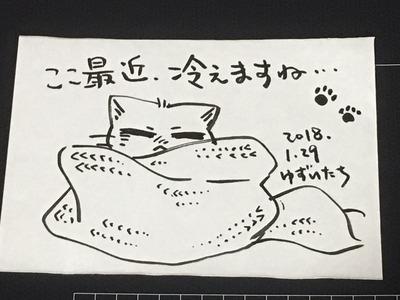 ここ最近、冷えますね…
2018.
1.29
ゆずいたち